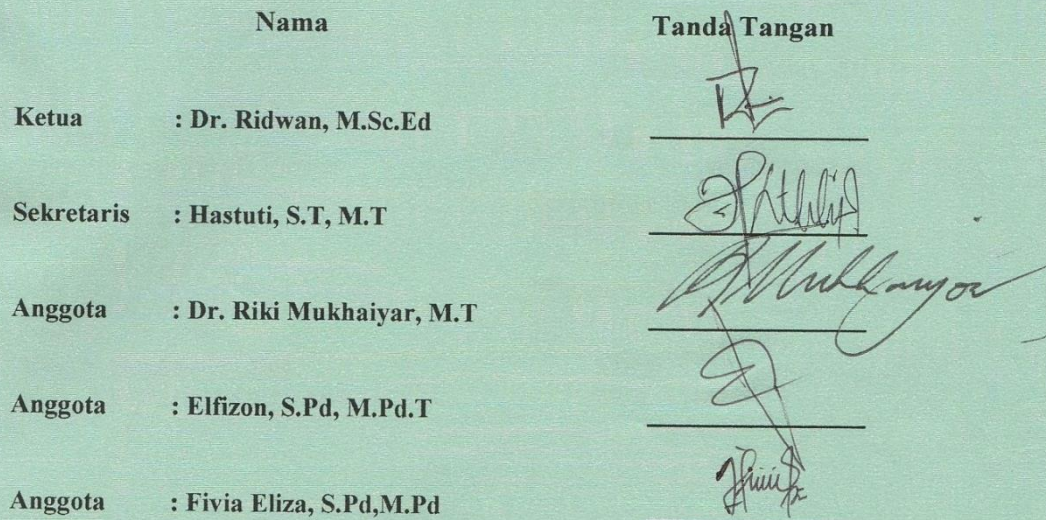 Nama Tanda Tangan
Ketua : Dr. Ridwan, M.Sc.Ed
Sekretaris : Hastuti, S.T, M.T
Anggota : Dr. Riki Mukhaiyar, M.T
Anggota : Elfizon, S.Pd, M.Pd.T
Anggota : Fivia Eliza, S.Pd,M.Pd